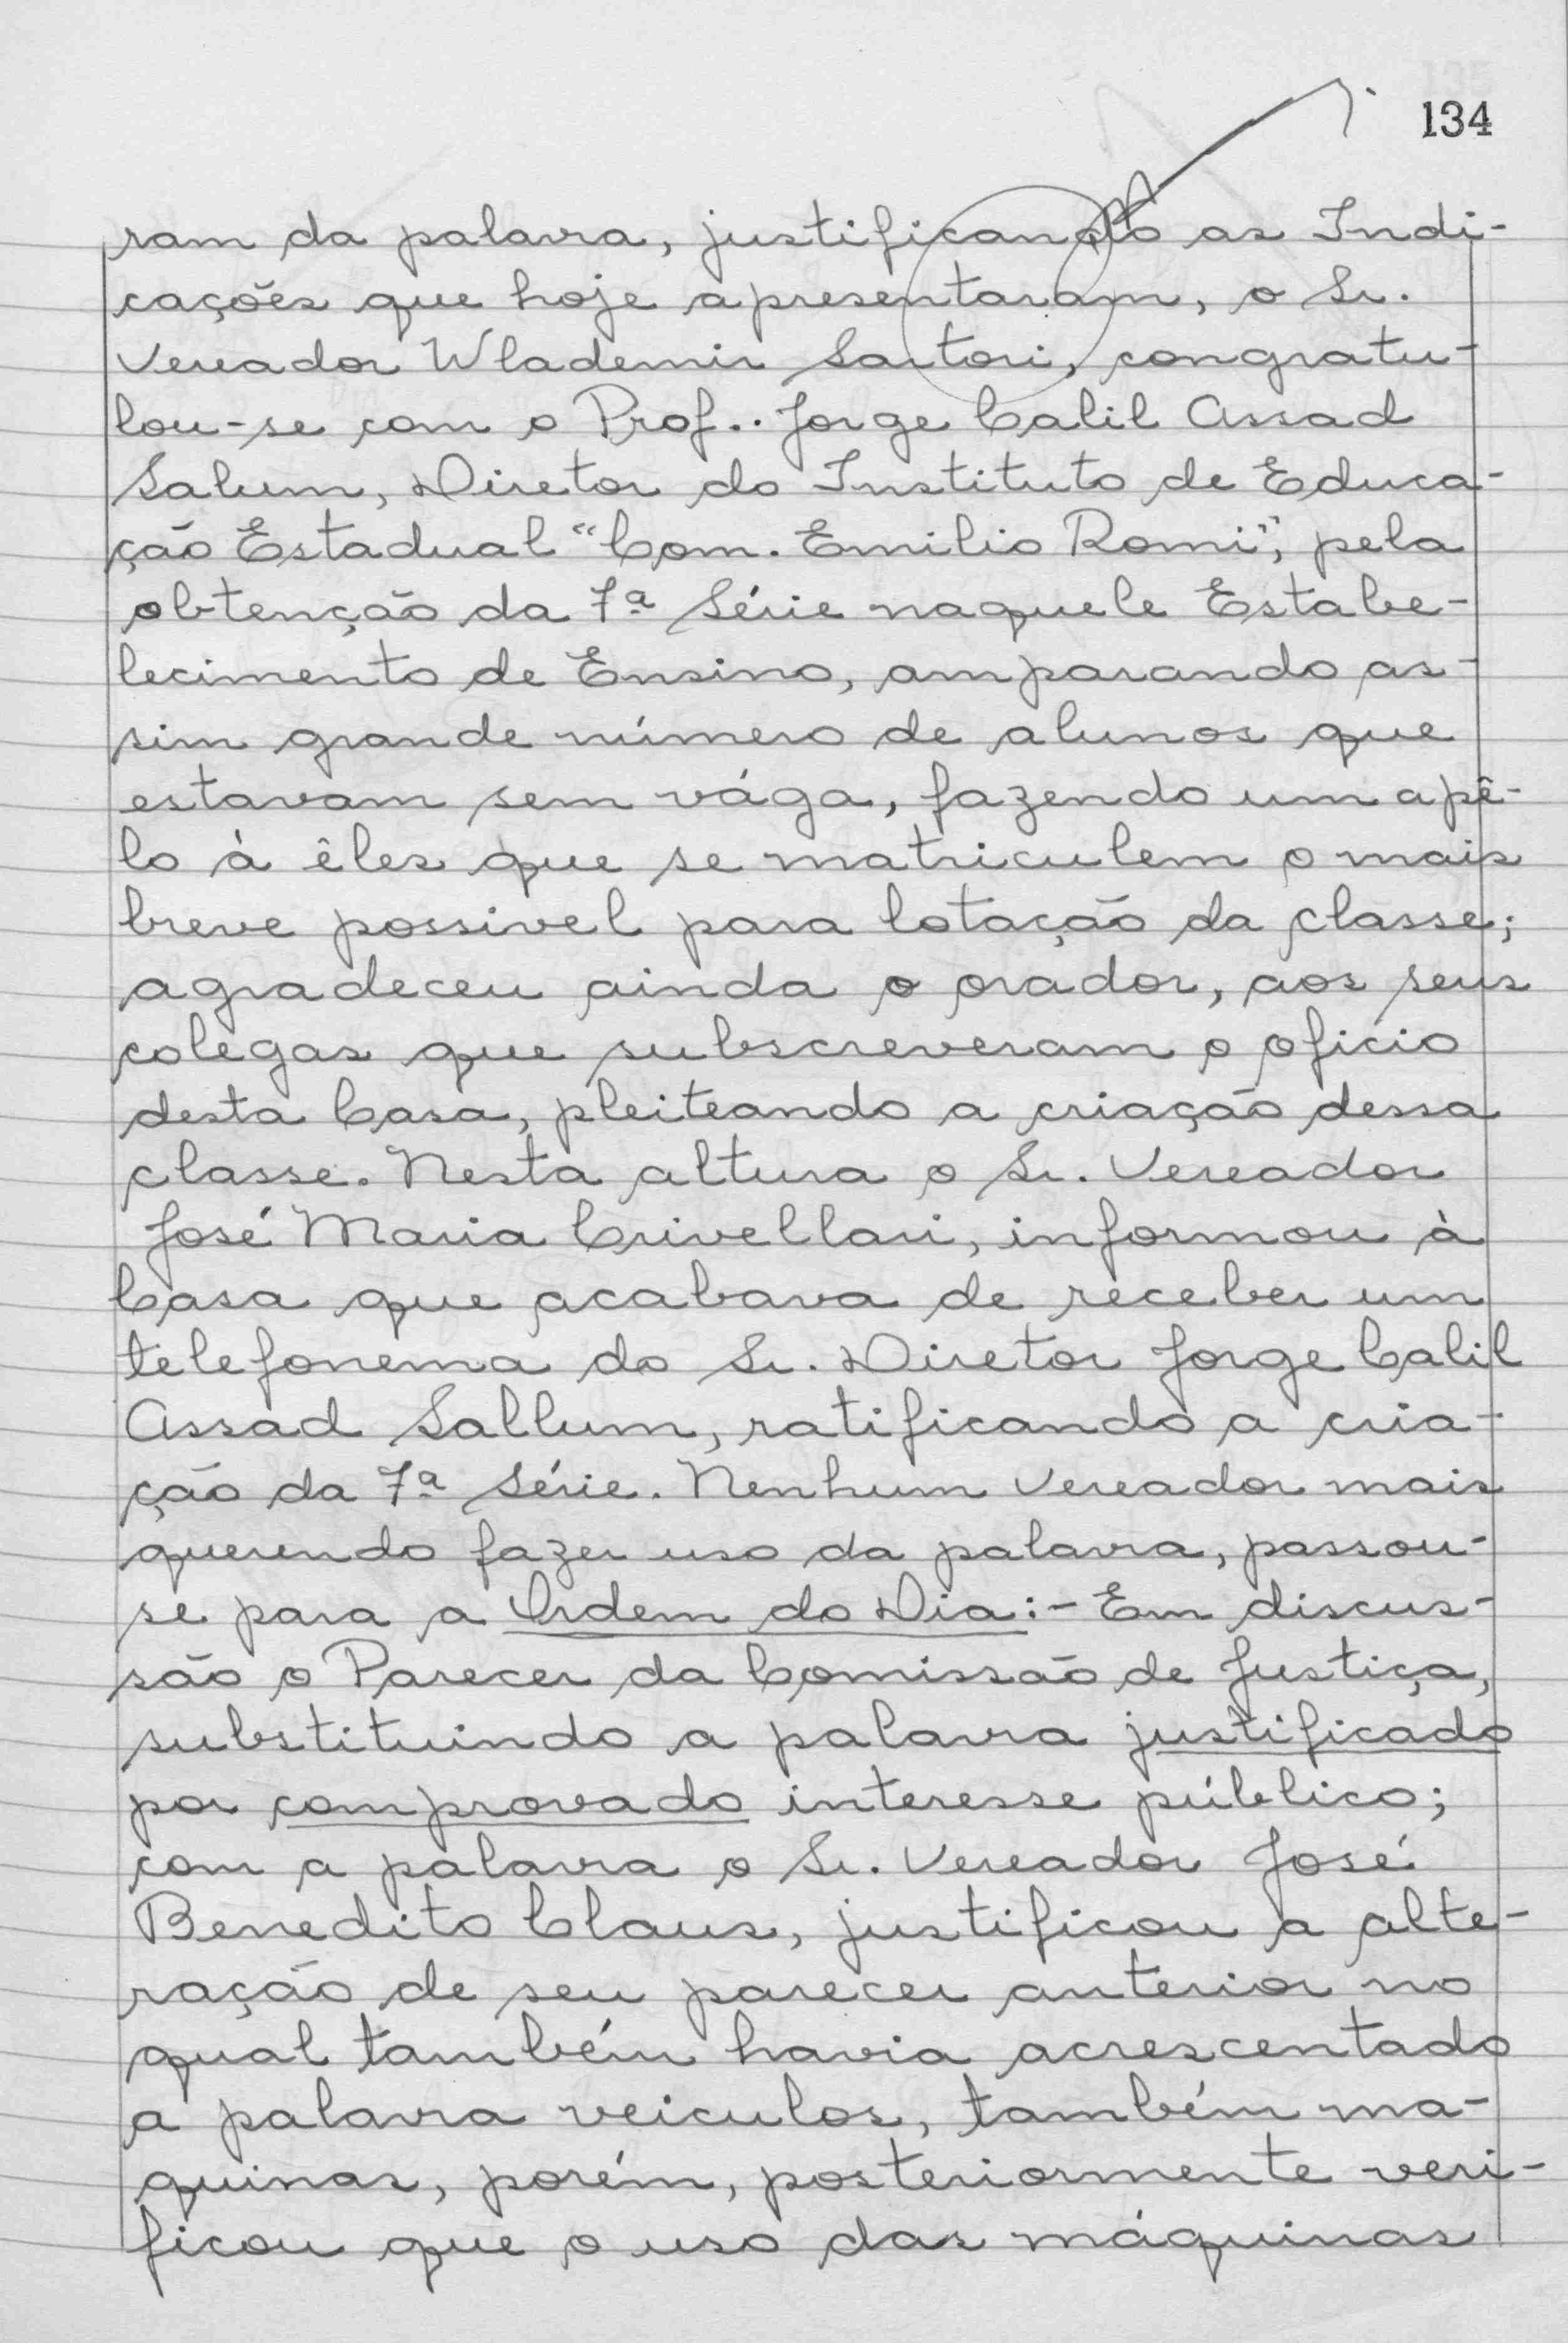 134
ram da palavra, justificando as Indi-
cações que hoje apresentaram, o Sr.
Vereador Wlademir Sartori, congratu-
lou-se com o Prof.. Jorge Calil Assad
Salum, Diretor do Instituto de Educa-
ção Estadual "Com. Emilio Romi", pela
obtenção da 7ª Série naquele Estabe-
lecimento de Ensino, amparando as-
sim grande número de alunos que
estavam sem vága, fazendo um apê-
lo à êles que se matriculem o mais
breve possivel para lotação da classe;
agradeceu ainda o orador, aos seus
colegas que subscreveram o oficio
desta Casa, pleiteando a criação dessa
classe. Nesta altura o Sr. Vereador
José Maria Crivellari, informou à
Casa que acabava de receber um
telefonema do Sr. Diretor Jorge Calil
Assad Sallum, ratificando a cria-
ção da 7ª Série. Nenhum Vereador mais
querendo fazer uso da palavra, passou-
se para a Ordem do Dia:- Em discus-
são o Parecer da Comissão de Justiça,
substituindo a palavra justificado
por comprovado interesse público;
com a palavra o Sr. Vereador José
Benedito Claus, justificou a alte-
ração de seu parecer anterior no
qual também havia acrescentado
a palavra veiculos, também ma-
quinas, porém, posteriormente veri-
ficou que o uso das máquinas